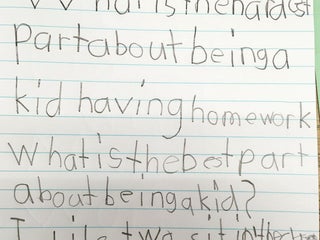 What is the hardest
Part about being a
kid having homework
What is the best part
about being a kid?
I two sit in the